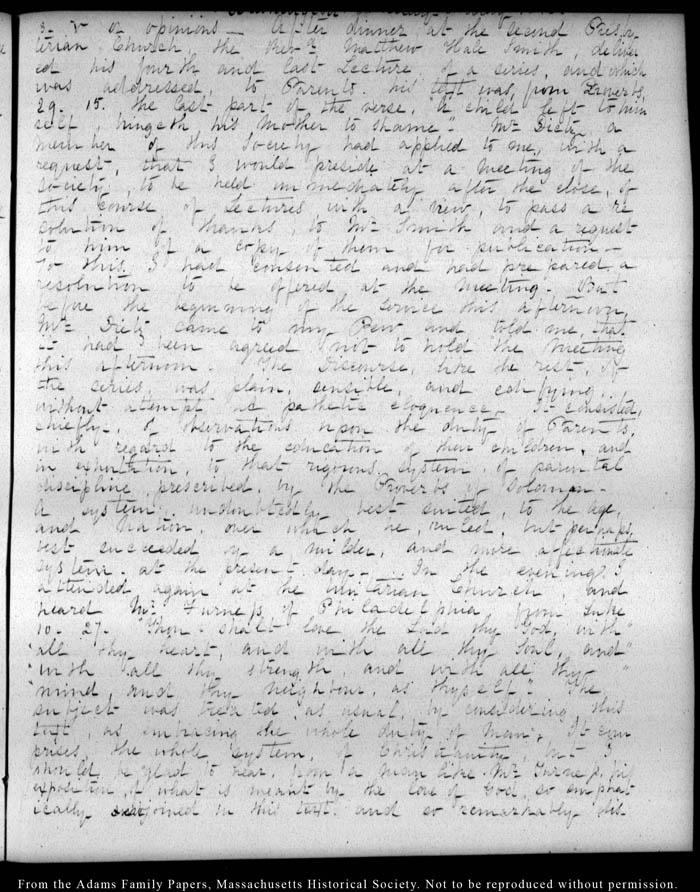 of opinions — After dinner, at the second Presby-
terian Church, the Revd. Matthew Hale Smith, deliver
ed his fourth and last Lecture, of a series, and which
was addressed, to Parents. his text was, from Proverbs,
29. 15. the last part of the verse, "A child left to him
self, bringeth his Mother to shame". Mr. Dietz, a
member of this Society had applied to me, with a
request, that I would preside at a Meeting of the
Society, to be held immediately after the close, of
this course of Lectures with a view, to pass a re
solution of thanks, to Mr. Smith and a request
to him of a copy of them for publication —
To this, I had consented and had prepared a
resolution to be offered, at the Meeting. But
before the beginning of the service this afternoon,
Mr. Dietz, came to my Pew and told me, that
it had been agreed not to hold the Meeting
this afternoon. The Discourse, like the rest, of
the series, was plain, sensible, and edifying,
without attempt at pathetic eloquence. It consisted,
chiefly, of observations upon the duty of Parents,
with regard to the education of their children, and
in exhortation, to that rigorous system, of parental
discipline, prescribed, by the Proverbs of Solomon —
A system, undoubtedly best suited, to the age,
and Nation, over which he ruled, but perhaps,
best succeeded by a milder, and more affectionate
system, at the present day — In the evening, I
attended again at the Unitarian Church, and
heard Mr. Furness of Philadelphia, from Luke
10. 27. "Thou shalt love the Lord thy God, with"
"all thy heart, and with all thy Soul, and"
"with all thy strength, and with all thy"
"mind, and thy neighbour, as thyself." The
subject was treated, as usual, by considering this
text, as embracing the whole duty of Man. It com
prises, the whole system, of Christianity, but I
should be glad to hear, from a man like Mr. Furness, his
exposition, of what is meant by the love of God, so emphat
ically enjoined in this text, and so remarkably dis
From the Adams Family Papers, Massachusetts Historical Society. Not to be reproduced without permission.